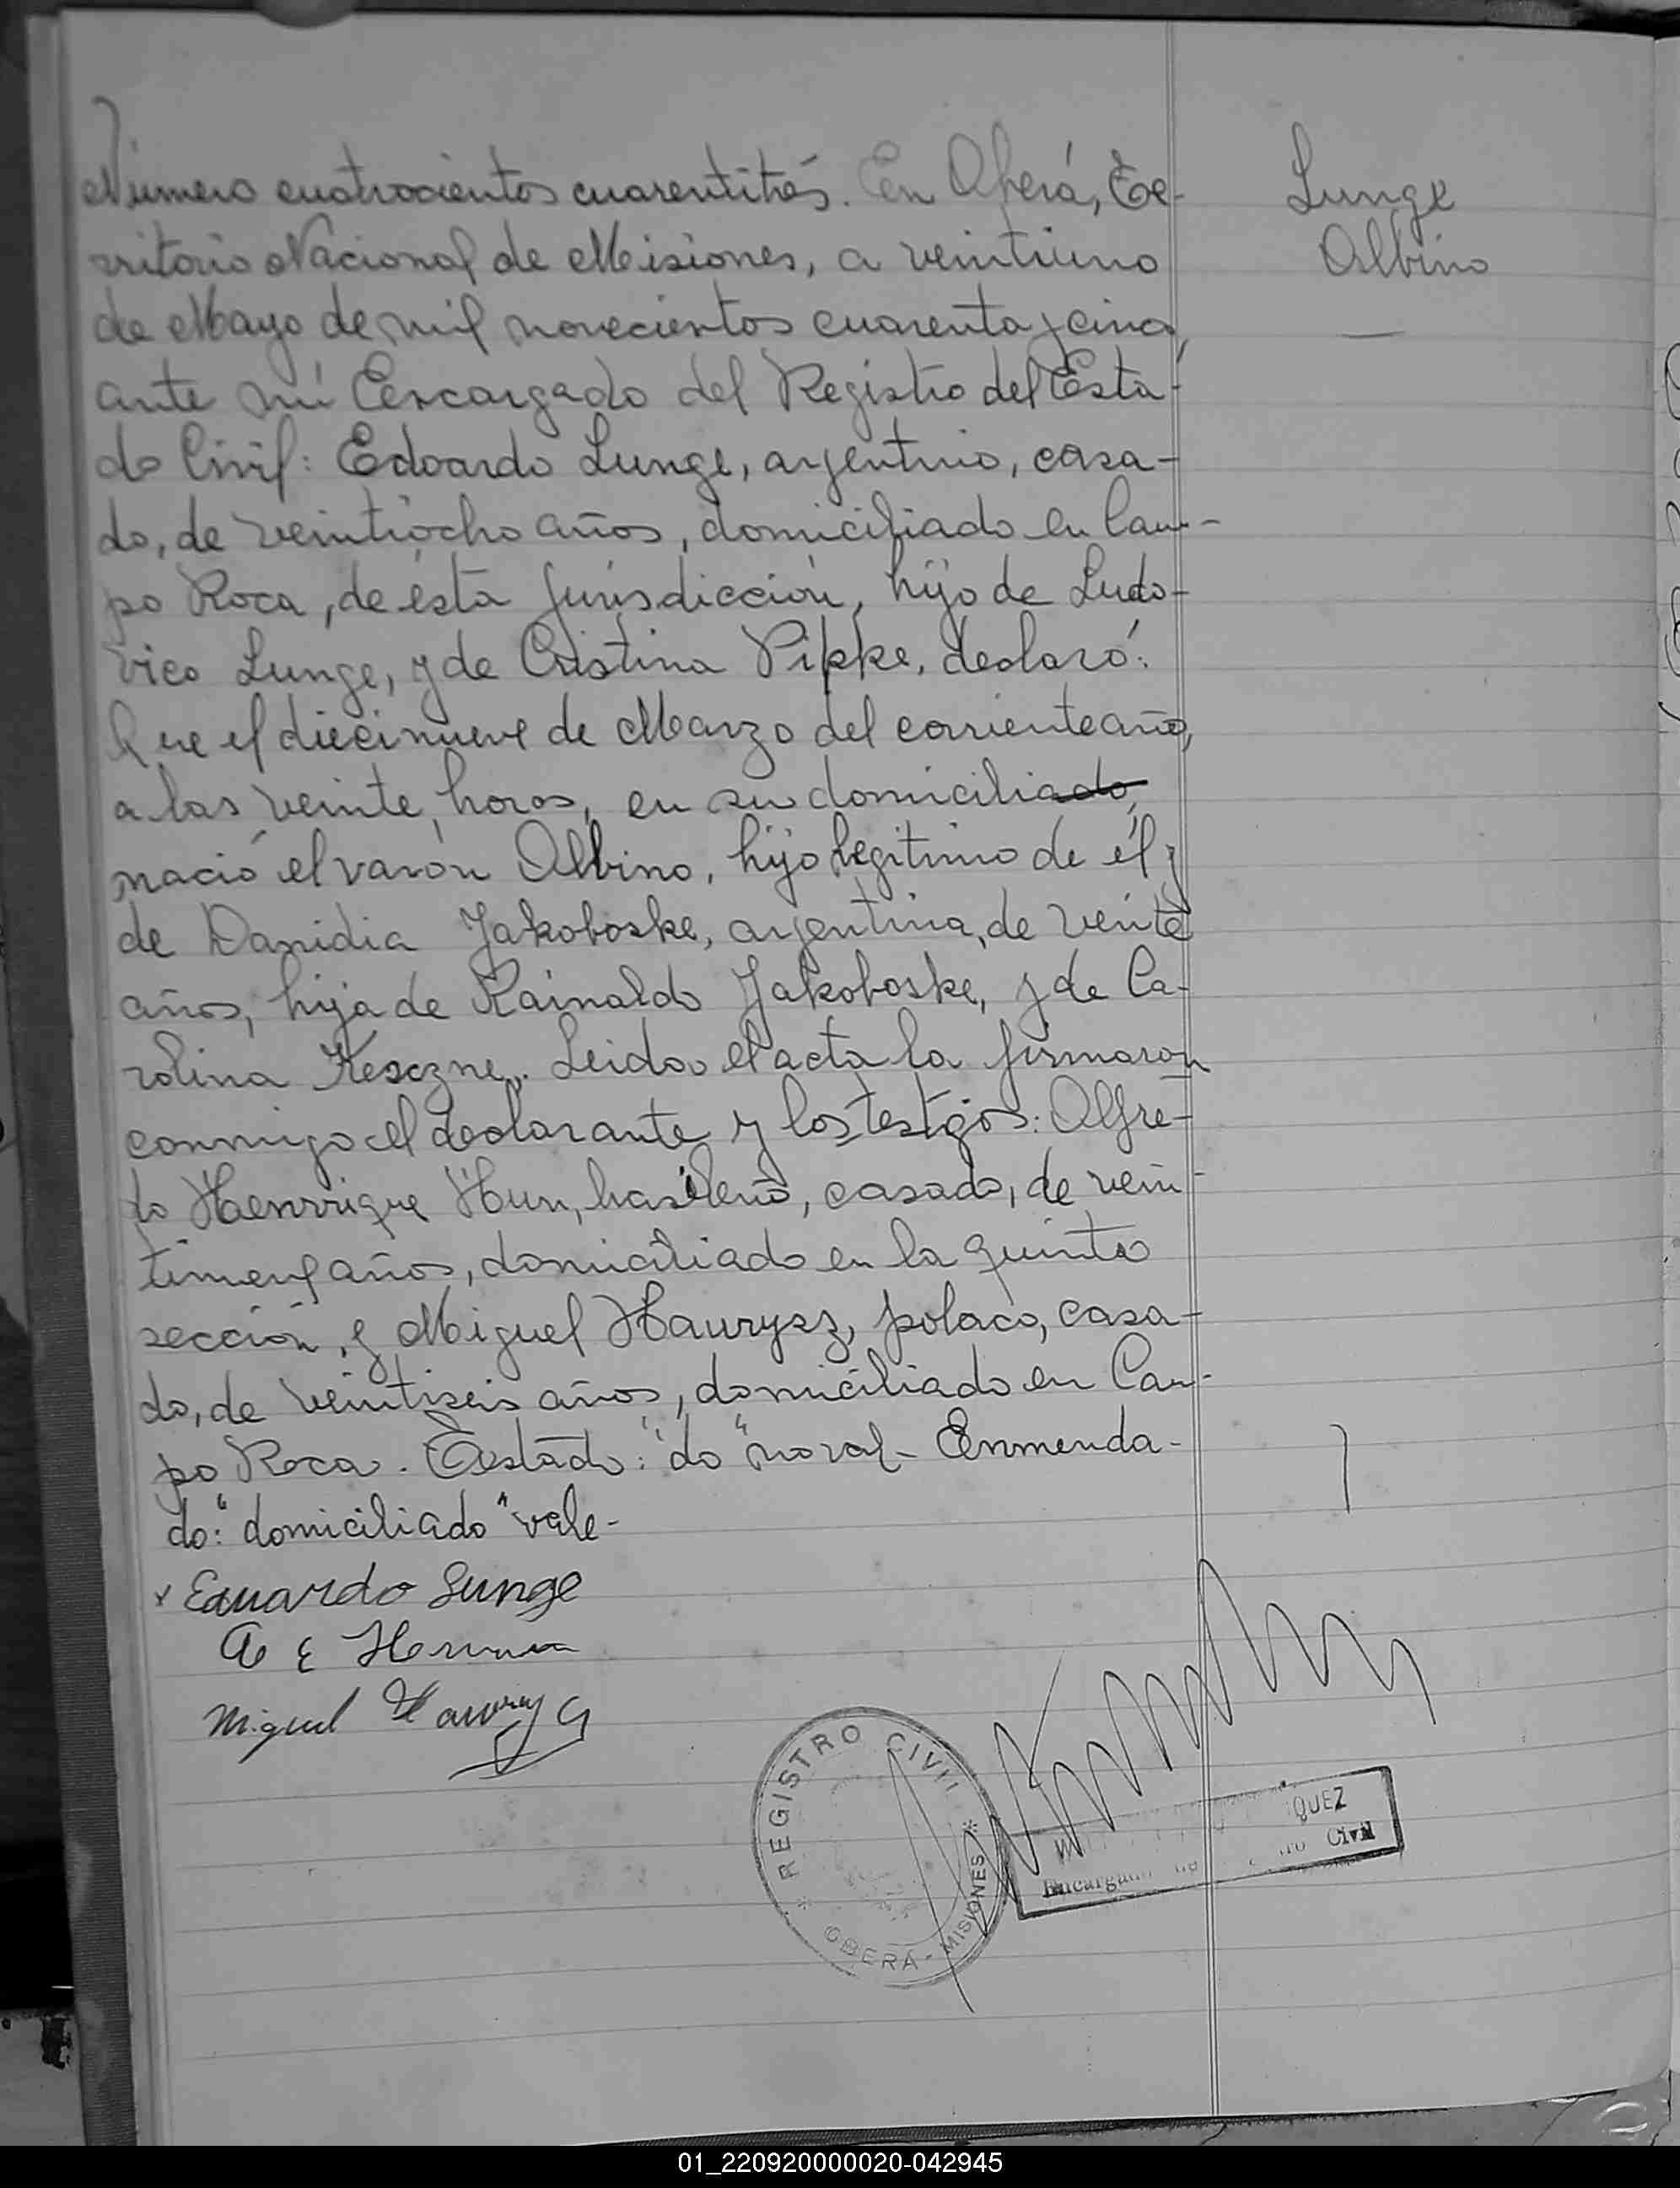 Número cuatrocientos cuarentitrés. En Oberá, Te-
rritorio Nacional de Misiones, a veintiuno
de Mayo de mil novecientos cuarenta y cinco,
ante mí Encargado del Registro del Esta-
do Civil: Edoardo Lunge, argentino, casa-
do, de veintiocho años, domiciliado en Cam-
po Roca, de ésta jurisdicción, hijo de Ludo-
vico Lunge, y de Cristina Pipke, declaró:
Que el diecinueve de Marzo del corriente año,
a las veinte horas, en su domiciliado,
nació el varón Albino, hijo legitimo de él y
de Danidia Jakoboske, argentina, de veinte
años, hija de Rainaldo Jakoboske, y de Ca-
rolina Kesczne. Leida el acta la firmaron
conmigo el declarante y los testigos: Alfre-
do Henrrique Hun, brasileño, casado, de vein-
tinueve años, domiciliado en la quinta
sección, y Miguel Haurysz, polaco, casa-
do, de veintiseis años, domiciliado en Cam-
po Roca. Testado: "do" no val- Enmenda-
do: "domiciliado" vale-
Lunge
Albino
x Eduardo Lunge
A E
Miguel
REGISTRO CIVIL
OBERÁ - MISIONES
QUEZ
Civil
01_220920000020-042945